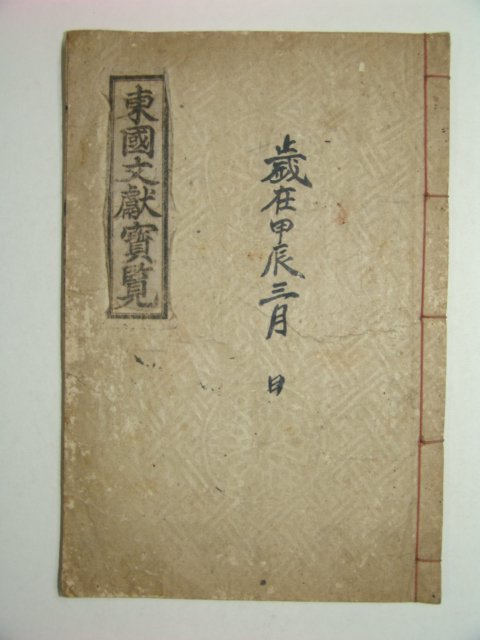 歲在甲辰三月 日
東國文獻寶覽